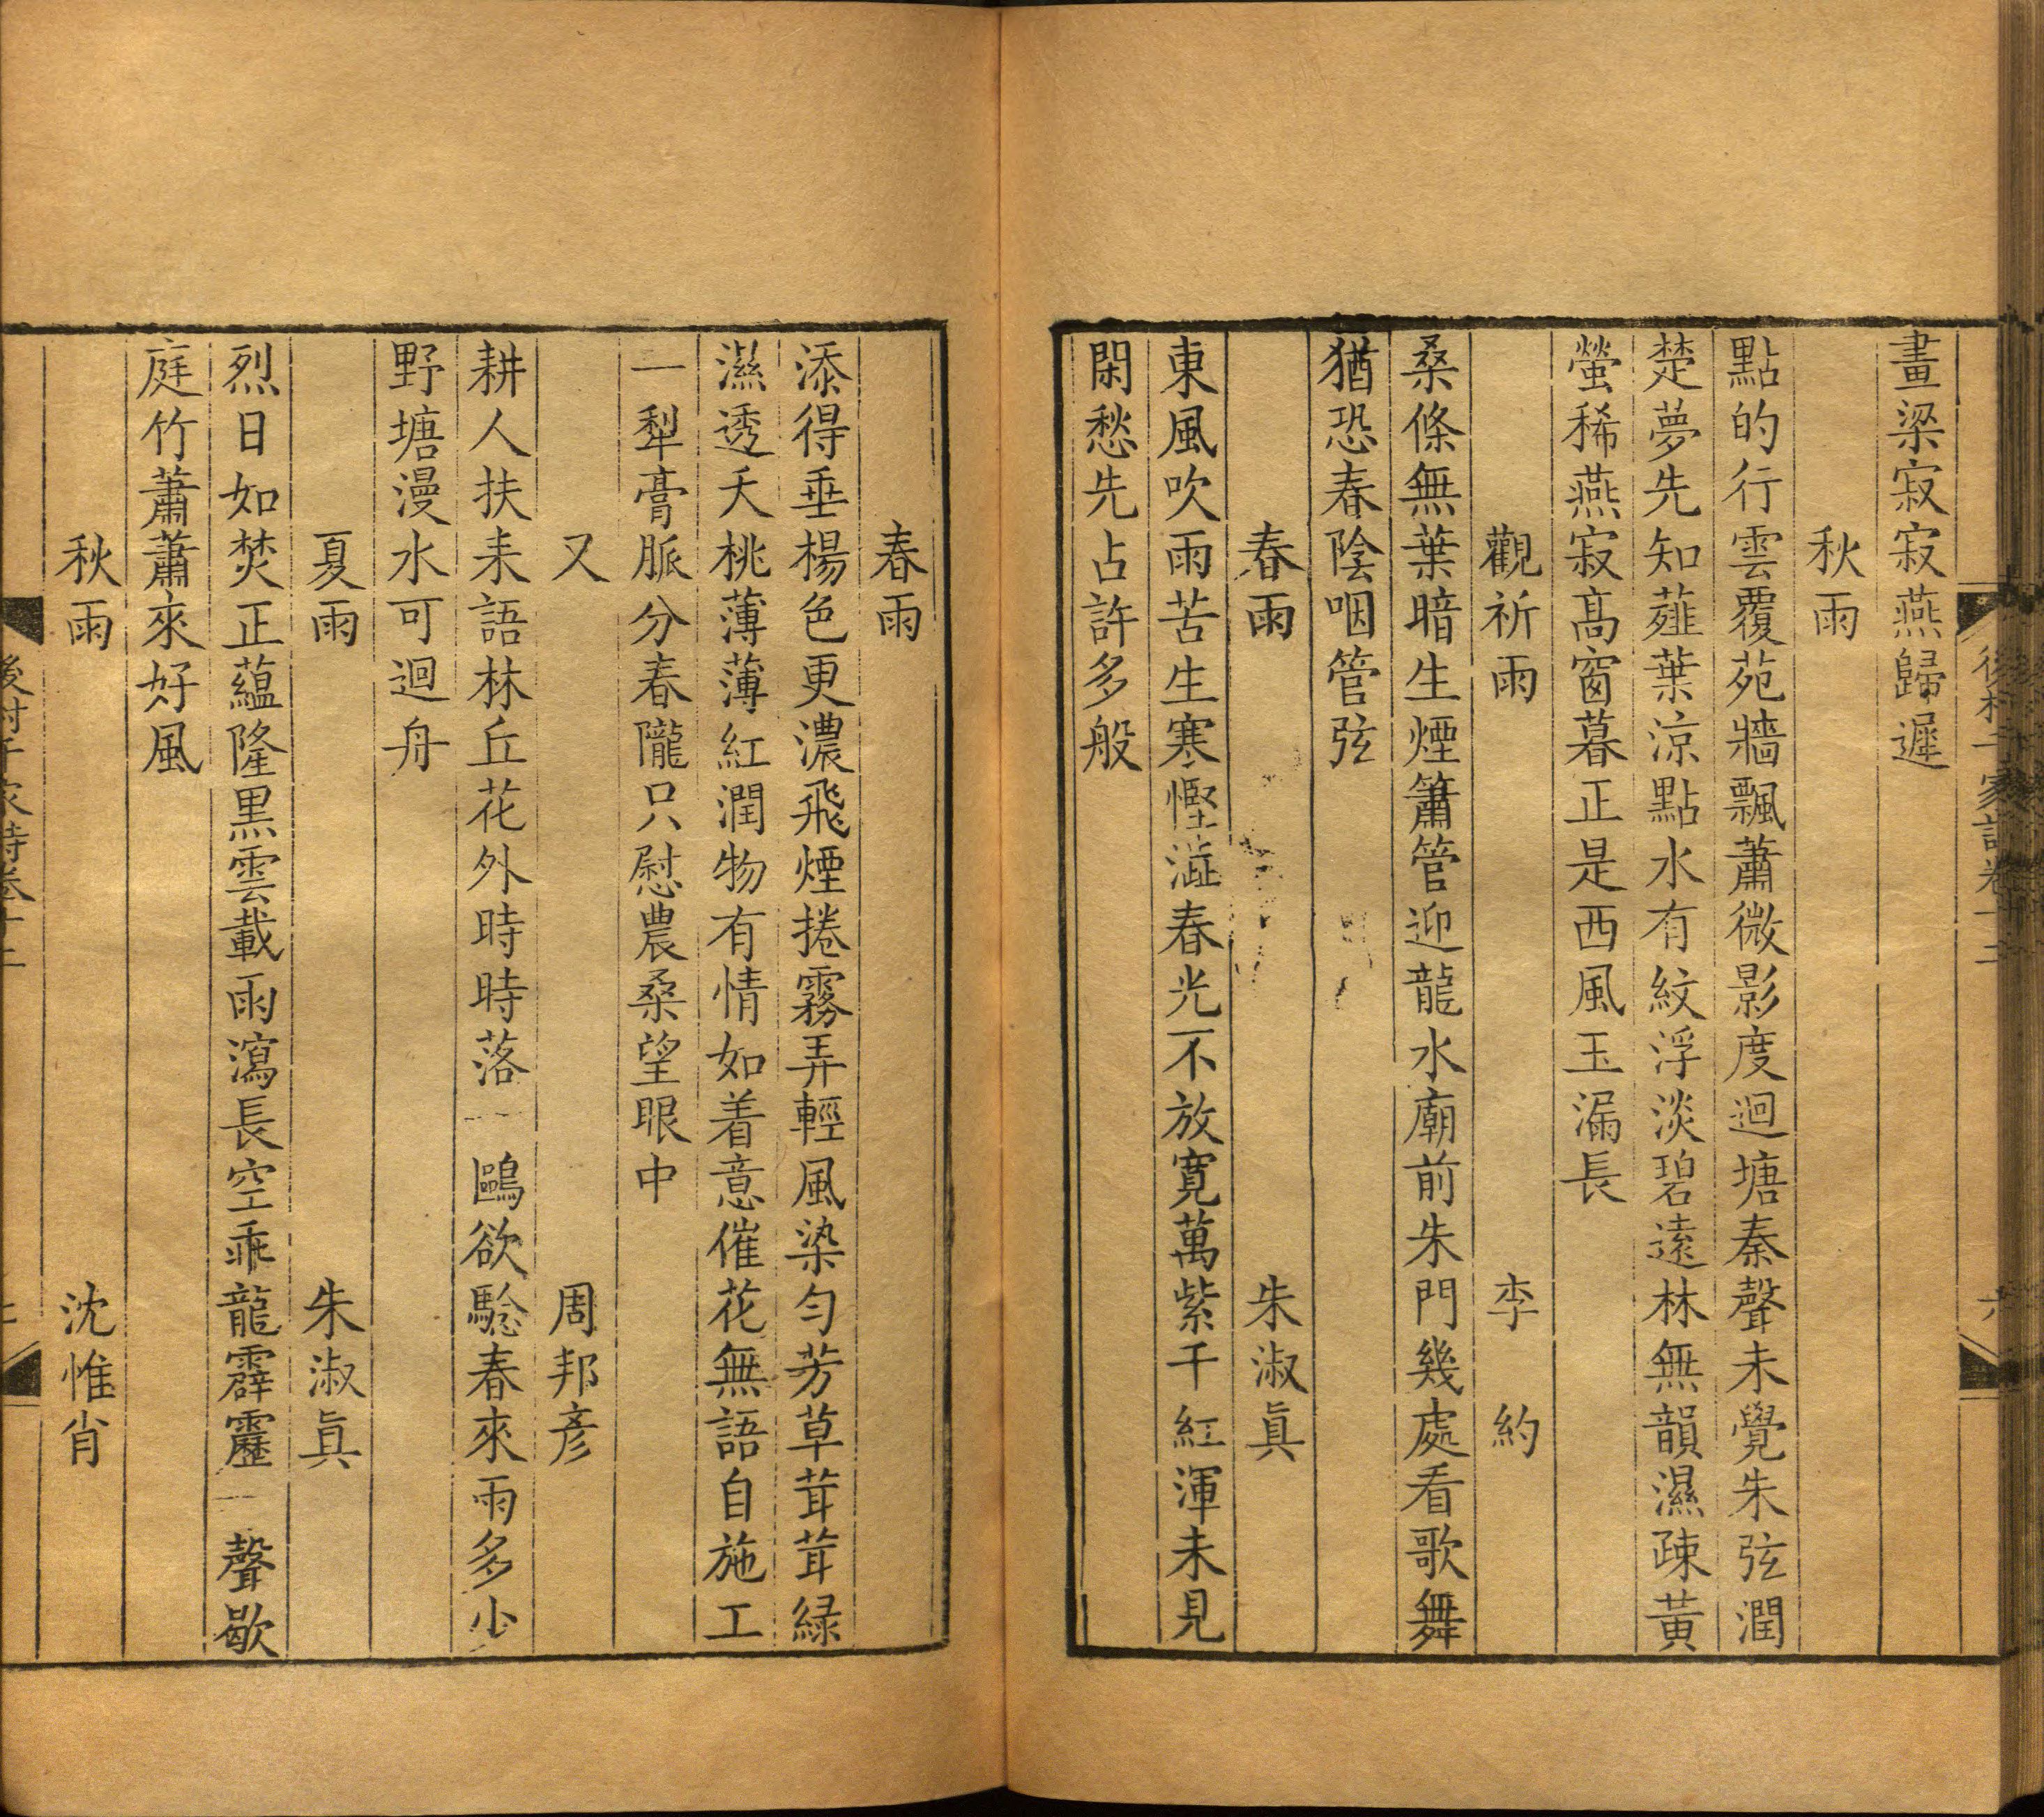 畫梁寂寂燕歸遲
秋雨
點的行雲覆苑牆飄蕭微影度迴塘秦聲未覺朱弦潤
楚夢先知薤葉涼點水有紋浮淡碧遠林無韻濕疎黃
螢稀燕寂高窗暮正是西風玉漏長
觀祈雨 李約
桑條無葉暗生煙簫管迎龍水廟前朱門幾處看歌舞
猶恐春陰咽管弦
春雨 朱淑眞
東風吹雨苦生寒慳澁春光不放寬萬紫千紅渾未見
閑愁先占許多般
春雨
添得垂楊色更濃飛煙捲霧弄輕風染勻芳草茸茸綠
濕透夭桃薄薄紅潤物有情如着意催花無語自施工
一犁膏脈分春隴只慰農桑望眼中
又 周邦彥
耕人扶耒語林丘花外時時落一鷗欲驗春來雨多少
野塘漫水可迴舟
夏雨 朱淑眞
烈日如焚正蘊隆黑雲載雨瀉長空乖龍霹靂一聲歇
庭竹蕭蕭來好風
秋雨 沈惟肖
後村千家詩卷十二